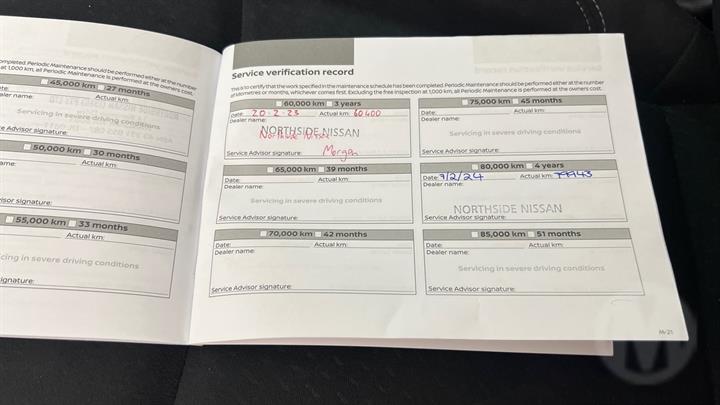 ompleted. Periodic Maintenance should be performed either at the number
at 1,000 km, all Periodic Maintenance is performed at the owners cost.
45,000 km 27 months
Date:
Actual km:
ealer name:
Servicing in severe driving conditions
e Advisor signature:
50,000 km 30 months
Actual km:
ame:
isor signature:
55,000 km 33 months
Actual km:
cing in severe driving conditions
gnature:
Service verification record
This is to certify that the work specified in the maintenance schedule has been completed. Periodic Maintenance should be performed either at the number
of kilometres or months, whichever comes first. Excluding the free inspection at 1,000 km, all Periodic Maintenance is performed at the owners cost.
60,000 km 3 years
Date: 20-2-23 Actual km: 60400
Dealer name:
NORTHSIDE NISSAN
Northside Nissan
Service Advisor signature: Morgan
65,000 km 39 months
Date: Actual km:
Dealer name:
Servicing in severe driving conditions
Service Advisor signature:
70,000 km 42 months
Date: Actual km:
Dealer name:
Service Advisor signature:
75,000 km 45 months
Date: Actual km:
Dealer name:
Servicing in severe driving conditions
Service Advisor signature:
80,000 km 4 years
Date: 9/2/24 Actual km: 79943
Dealer name:
NORTHSIDE NISSAN
Service Advisor signature:
85,000 km 51 months
Date: Actual km:
Dealer name:
Servicing in severe driving conditions
Service Advisor signature:
M-21